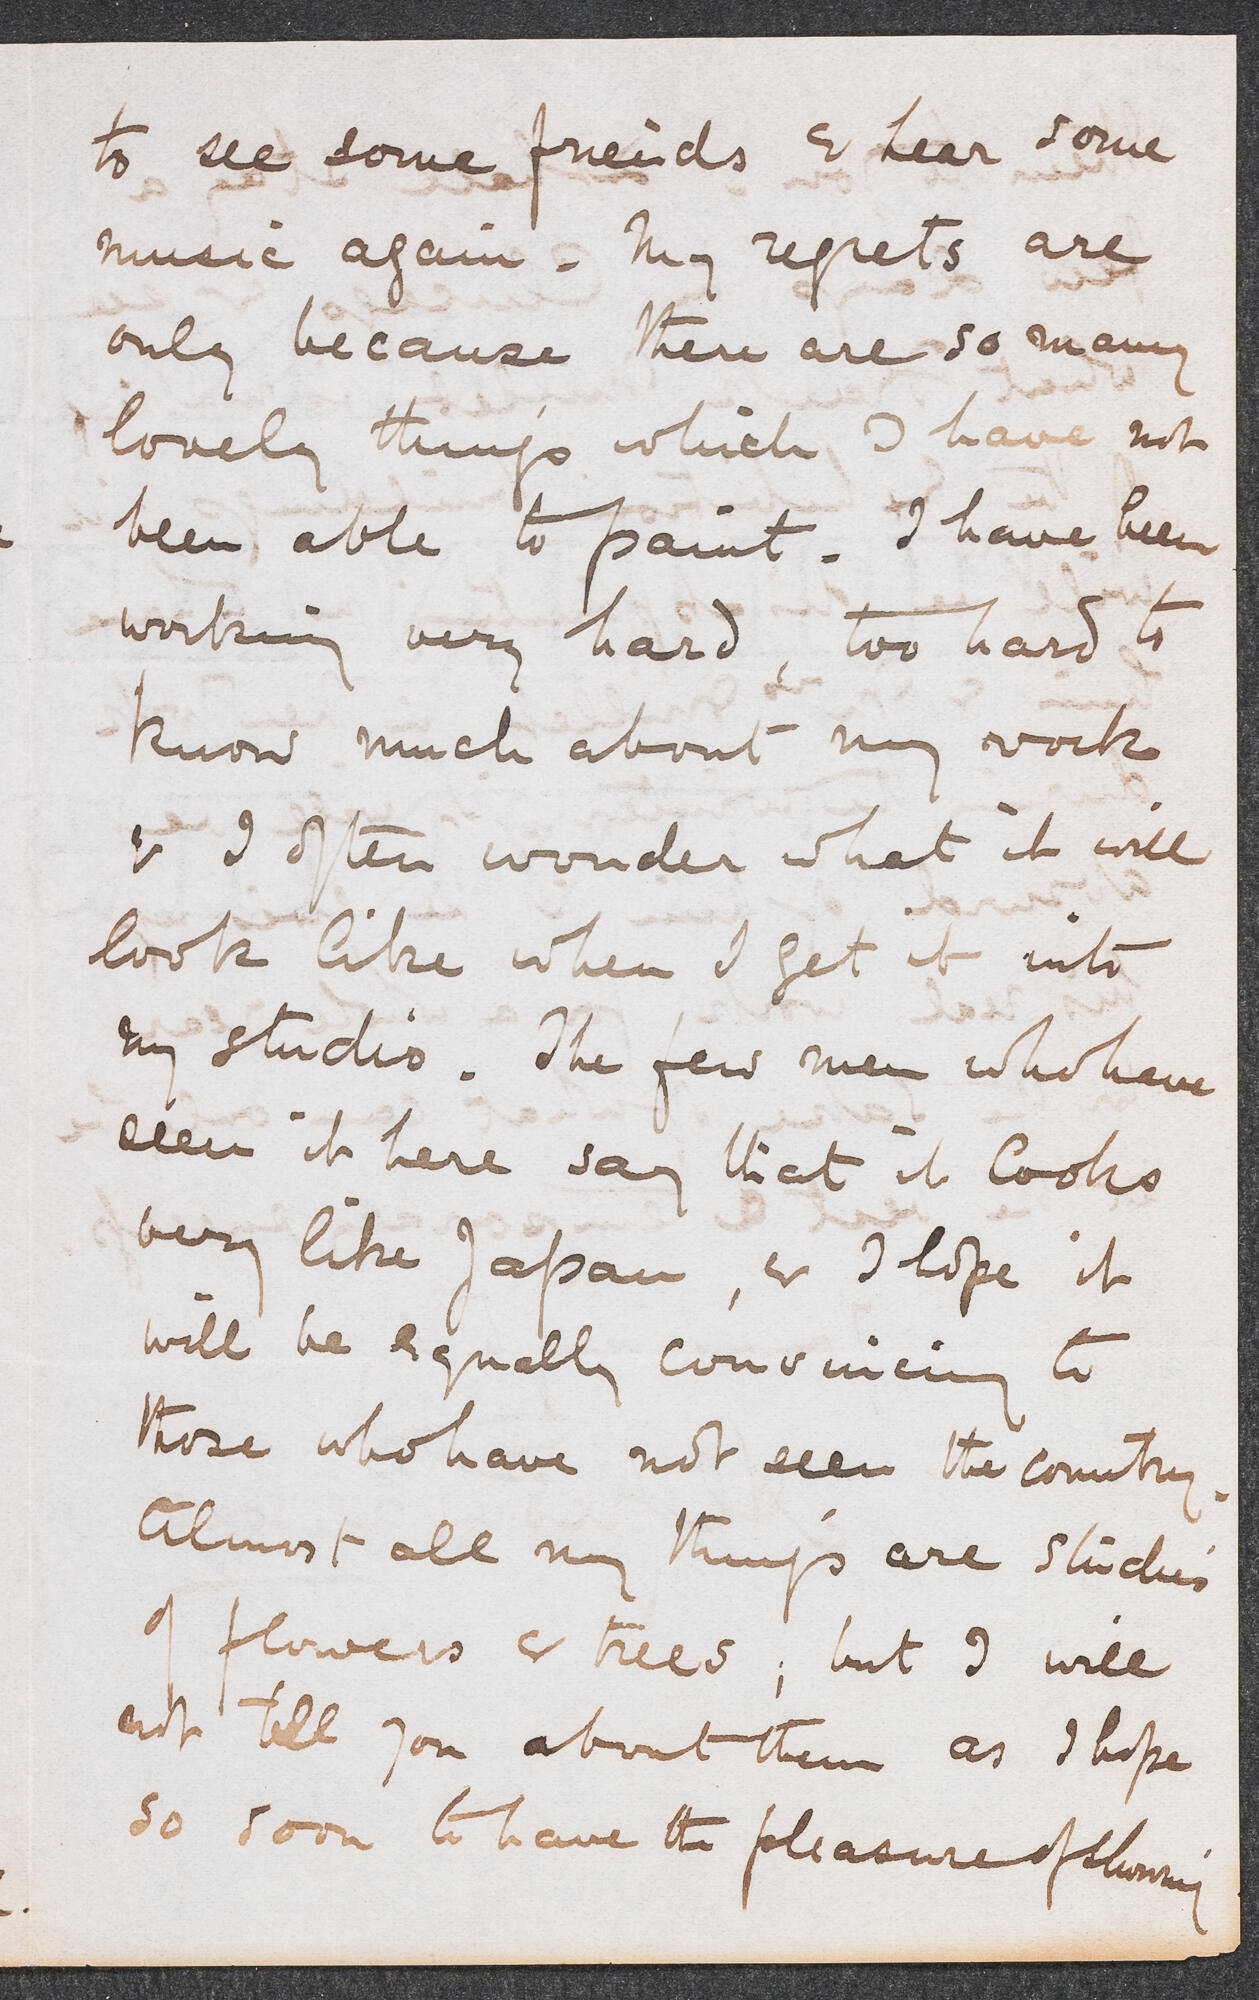 to see some friends & hear some
music again. My regrets are
only because there are so many
lovely things which I have not
been able to paint. I have been
working very hard, too hard to
know much about my work
& I often wonder what it will
look like when I get it into
my studio. The few men who have
seen it here say that it looks
very like Japan, & I hope it
will be equally convincing to
those who have not seen the country.
Almost all my things are studies
of flowers & trees, but I will
not tell you about them as I hope
so soon to have the pleasure of showing